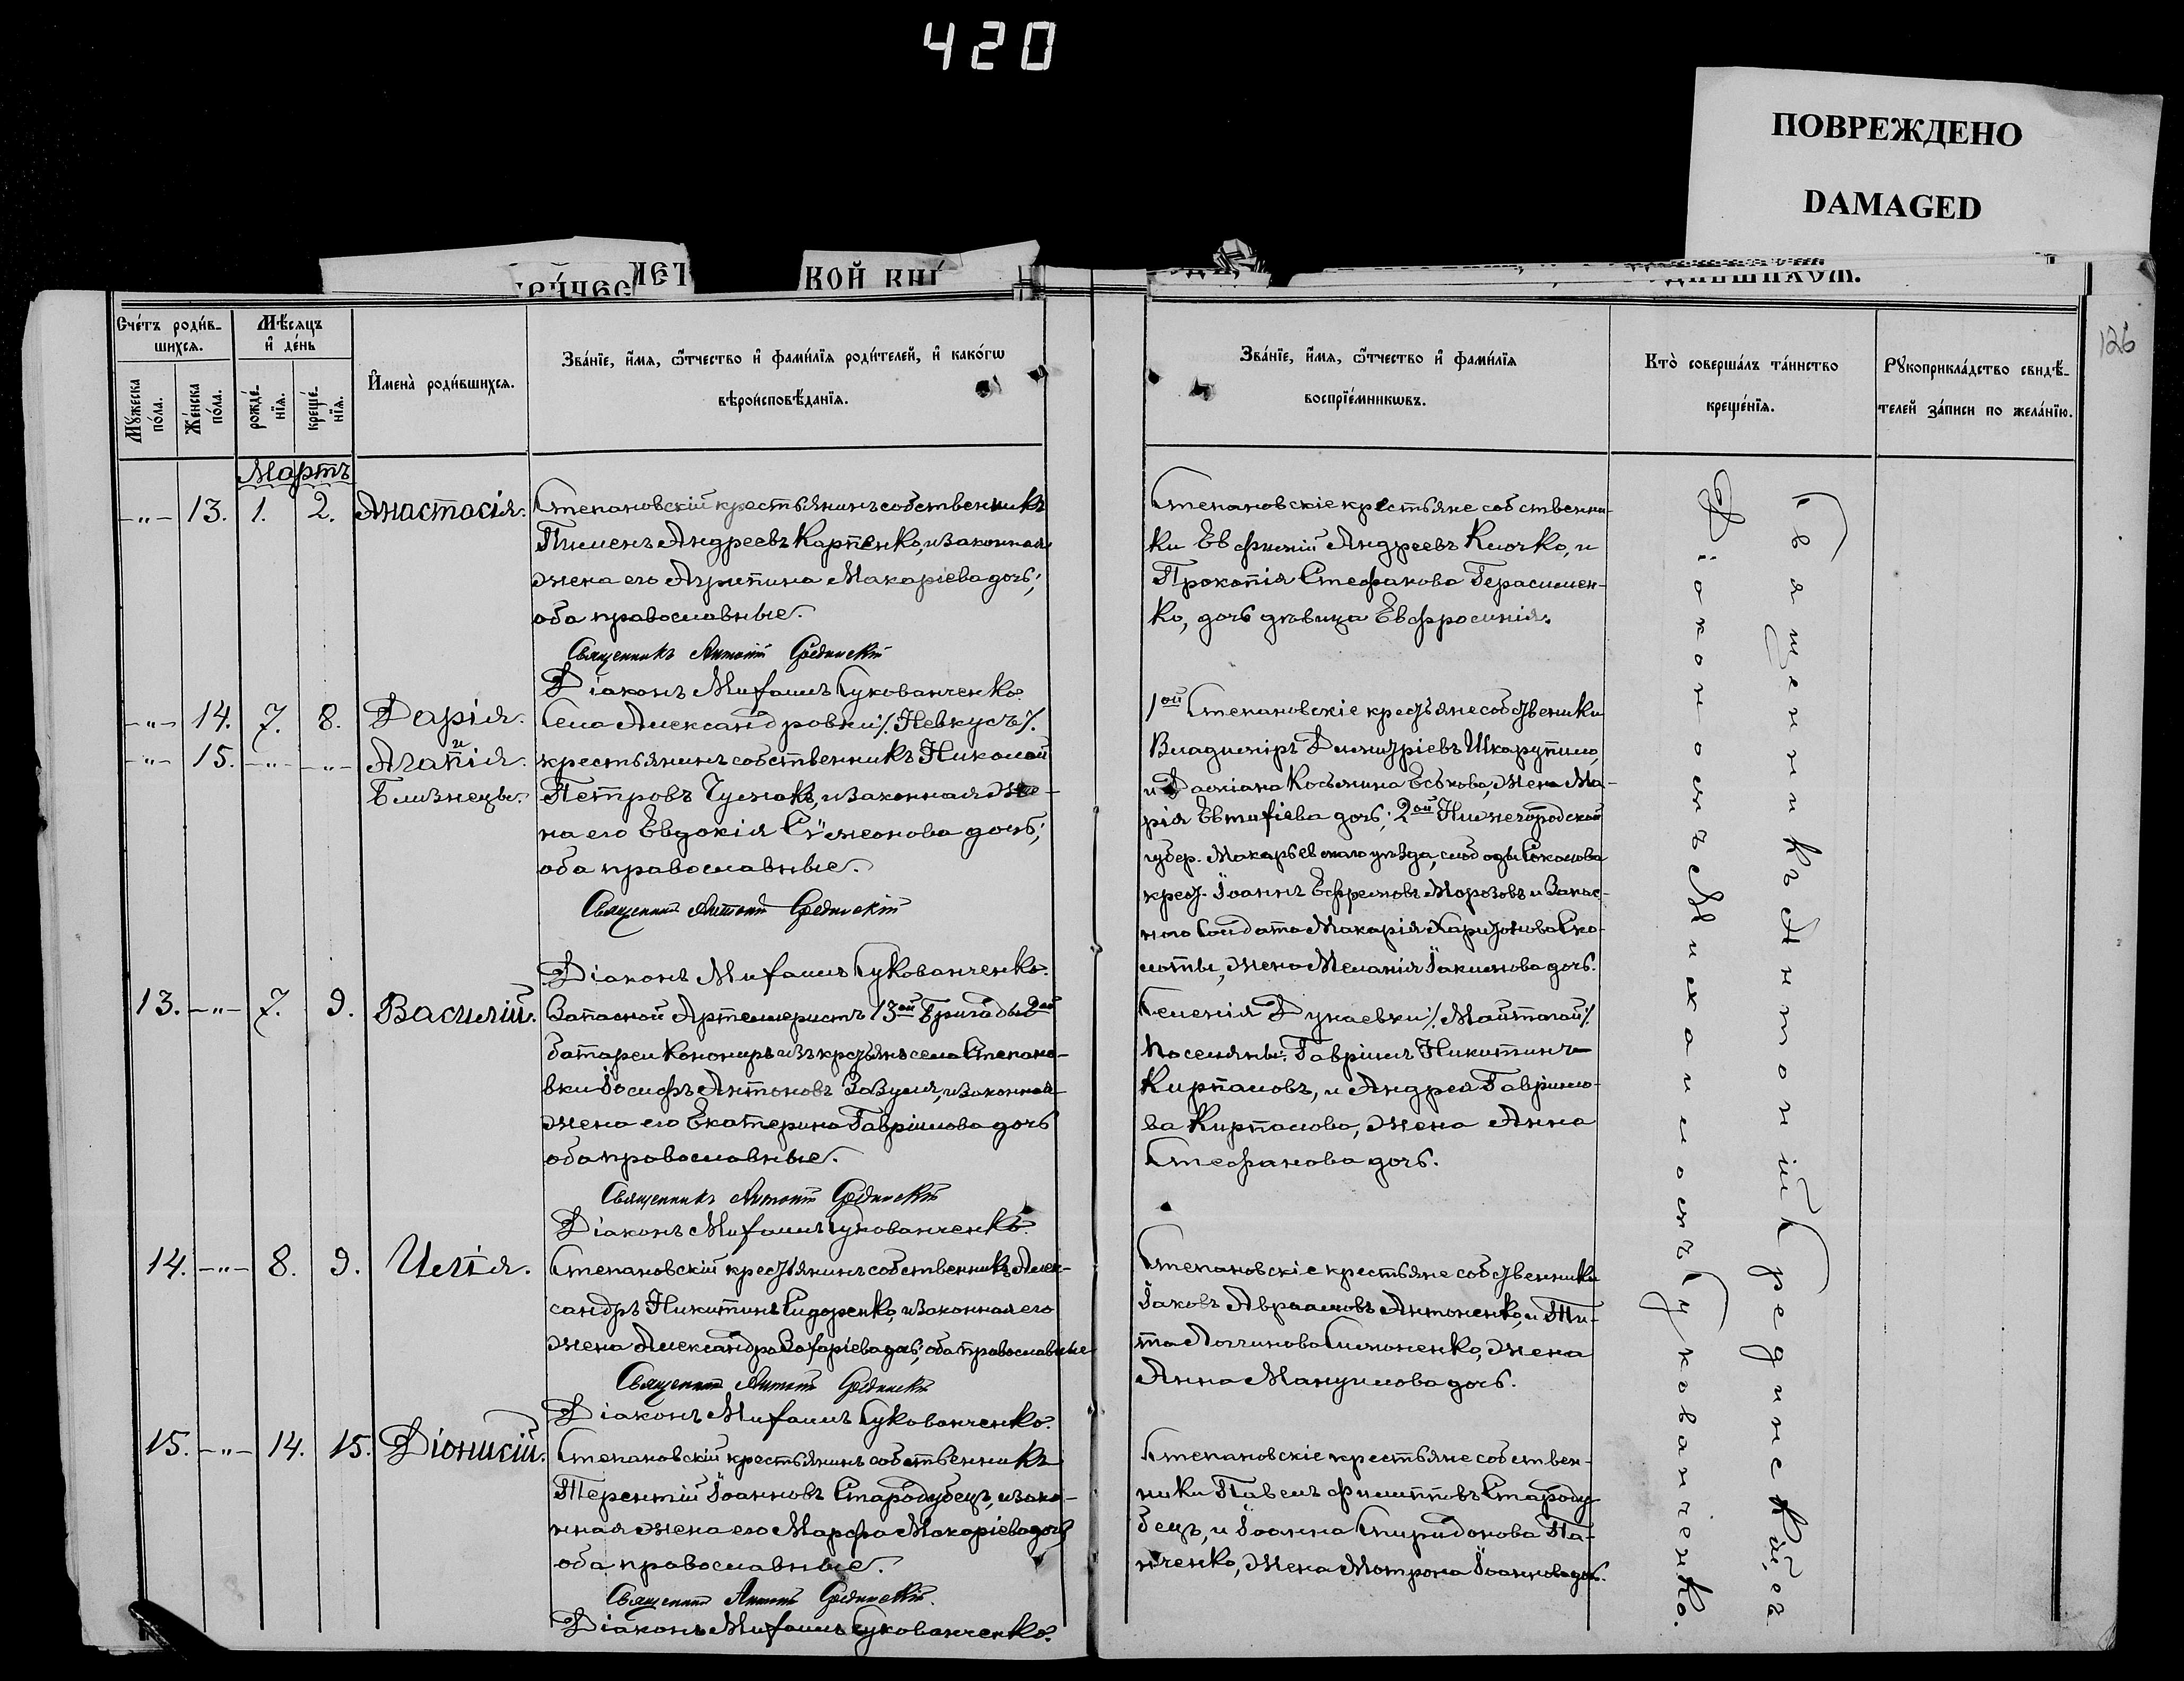 420
ПОВРЕЖДЕНО
DAMAGED
КОЙ КНИ
126
Счётъ роди́в-
шихся.
Мꙋ́жеска
по́ла.
Же́нска
по́ла.
Мѣ́сяцъ
и҆ де́нь
рожде́-
нїя.
креще́-
нїя.
И҆мена̀ роди́вшихся.
Зва́нїе, и҆́мя, ѻ҆́тчество и҆ фами́лїя роди́телей, и҆ како́гѡ
вѣроисповѣ́данїя.
Зва́нїе, и҆́мя, ѻ҆́тчество и҆ фами́лїя
воспрїе́мникѡвъ.
Кто̀ соверша́лъ та́инство
креще́нїя.
Рꙋкоприкла́дство свидѣ́-
телей за́писи по жела́нїю.
Мартъ
-„- 13. 1. 2. Анастасія.
Степановскій крестьянинъ собственникъ
Пименъ Андреевъ Карпенко, и законная
жена его Агрипина Макаріева дочь;
оба православные.
Священникъ Антоній Срединскій
Діаконъ Михаилъ Сукованченко.
Степановскіе крестьяне собственни-
ки Евфимій Андреевъ Клочко, и
Прокопія Стефанова Герасимен-
ко, дочь дѣвица Евфросинія.
-„- 14. 7. 8. Дарія.
и
-„- 15. -„- -„- Агапія.
Близнецы.
Села Александровки /. Невкусъ /.
крестьянинъ собственникъ Николай
Петровъ Чумакъ, и законная же-
на его Евдокія Сѵмеонова дочь;
оба православные.
Священникъ Антоній Срединскій
Діаконъ Михаилъ Сукованченко.
1ой Степановскіе крестьяне собственики
Владиміръ Димитріевъ Шкарупило,
и Даміана Косьмина Еськова, жена Ма-
рія Евтихіева дочь; 2ой Нижегородской
губер. Макарьевскаго уѣзда, слободы
крест. Іоаннъ Ефремовъ Морозовъ и Запас-
ного Солдата Макарія Харитонова Ско-
моты, жена Меланія Іакимова дочь.
13. -„- 7. 9. Василій.
Запасной Артелеристъ 13ой Бригады 2ой
батареи Конониръ изъ крестьянъ села Степано-
вки Іосифъ Антоновъ Зозуля, и законная
жена его Екатерина Гавріилова дочь
оба православные.
Священникъ Антоній Срединскій
Діаконъ Михаилъ Сукованченко.
Селенія Дунаевки /. Майтогай /.
поселяны: Гавріилъ Никитинъ
Кирпаловъ, и Андрея Гавріило-
ва Кирпалова, жена Анна
Стефанова дочь.
14. -„- 8. 9. Илія.
Степановскій крестьянинъ собственникъ Алек-
сандръ Никитинъ Сидоренко, и законная его
жена Александра Захаріева дочь; оба православные
Священникъ Антоній Срединскій
Діаконъ Михаилъ Сукованченко.
Степановскіе крестьяне собственники
Іаковъ Авраамовъ Антоненко, и Ти-
та Логгинова Симоненко, жена
Анна Мануилова дочь.
15. -„- 14. 15. Діонисій.
Степановскій крестьянинъ собственникъ
Терентій Іоанновъ Стародубецъ, и зако-
нная жена его Марфа Макаріева дочь
оба православные.
Священникъ Антоній Срединскій.
Діаконъ Михаилъ Сукованченко.
Степановскіе крестьяне собствен-
ники Павелъ Филипповъ Староду-
бецъ, и Іоанна Спиридонова Па-
нченко, жена Мотрона Іоаннова дочь.
Священникъ Антоній Срединскій, съ
Діакономъ Михаиломъ Сукованченко.